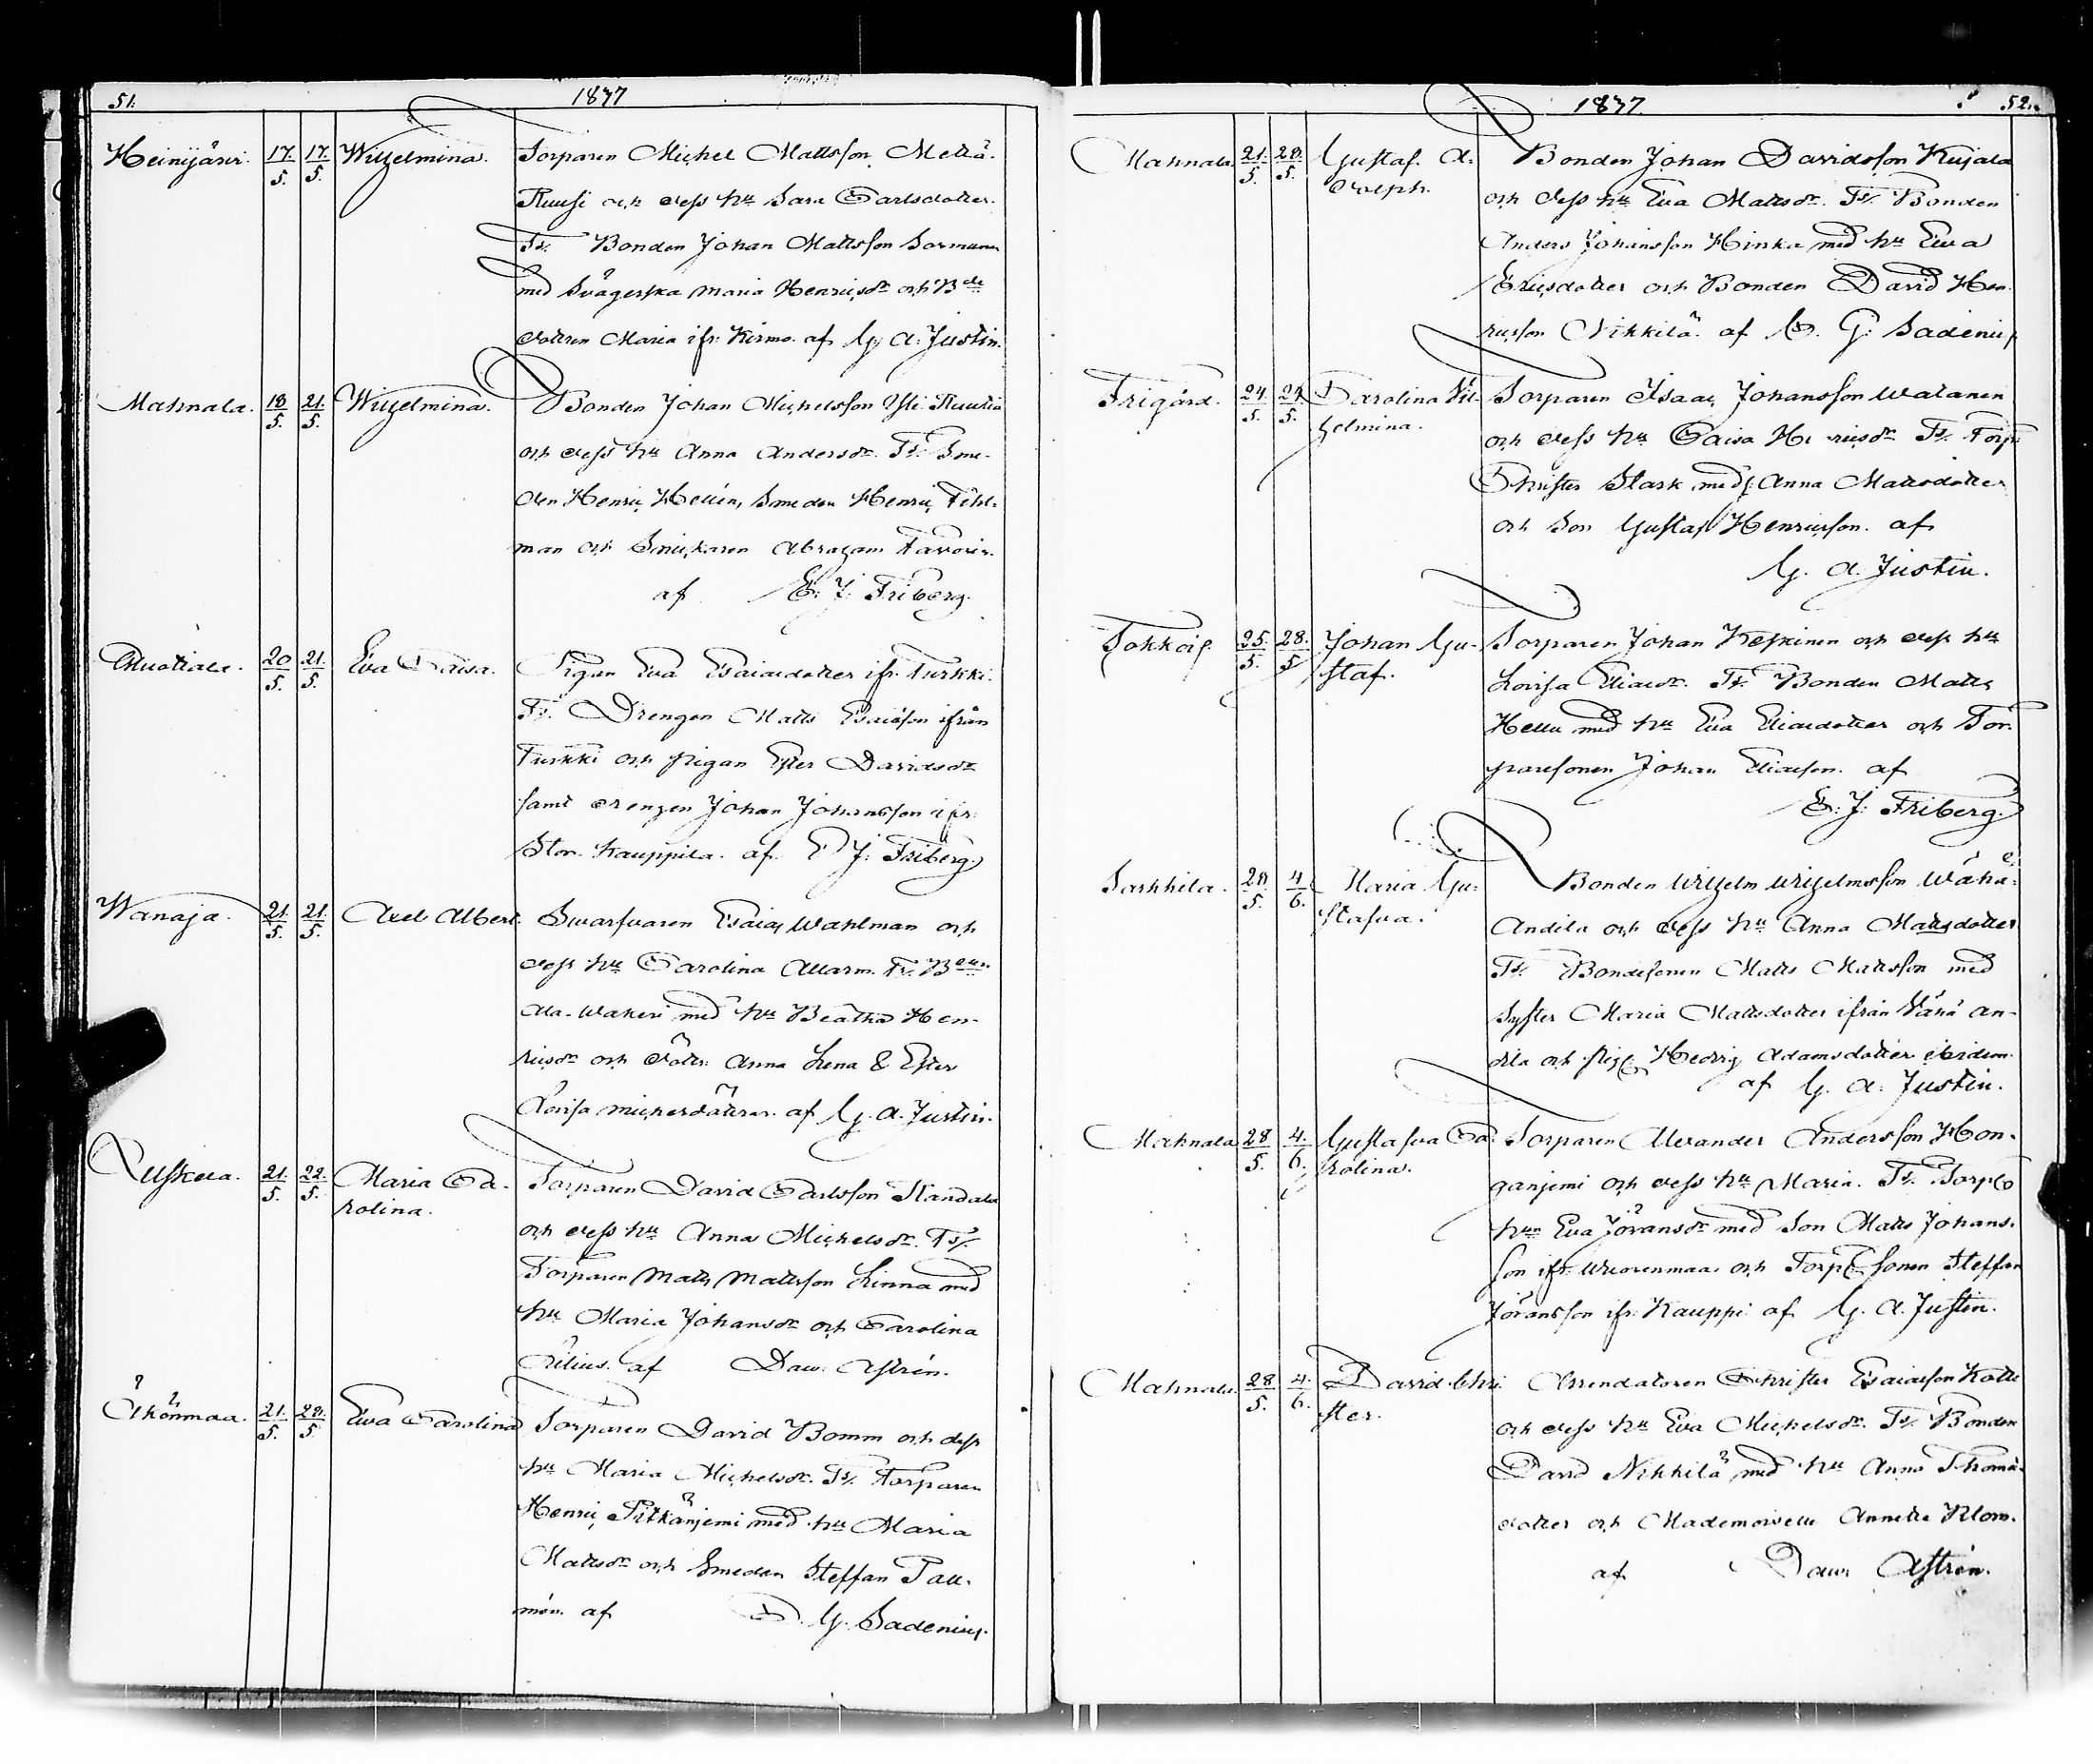 51. 1837
Heinijärvi. 17/5. 17/5. Wilhelmina. Torparen Michel Mattsson Metsä-
Ruusi och dess hu Sara Carlsdotter.
Ts. Bonden Johan Mattsson Sormunen
med Svägerska Maria Henricsdr och Bde
dottren Maria ifr. Kirmo. af G. A. Justin.
Mahnala. 18/5. 21/5. Wilhelmina. Bonden Johan Michelsson Yli-
och dess hu Anna Andersdr. Ts. Sme-
den Henric Hellén, Smeden Henric Fehl-
man och Snickaren Abraham Favorin.
af E. J. Friberg.
20/5. 21/5. Eva Caisa. Pigan Eva Esaiaedotter ifr. Turkki.
Ts. Drengen Matts Esaiasson ifrån
Turkki och pigan Ester Davidsdr
samt drengen Johan Johansson ifr.
Stor-Kauppila. af E. J. Friberg.
Wanaja. 21/5. 21/5. Axel Albert. Swarfvaren Esaias Wahlman och
dess hu Carolina Allarm. Ts.
Ala-Wakeri med hu Beatha Hen-
ricsdr och Döttr. Anna Lena & Ester
Lovisa Michelsdöttrar. af G. A. Justin.
21/5. 22/5. Maria Ca- Torparen David Carlsson Randala
rolina. och dess hu Anna Michelsdr. Ts.
Torparen Matts Mattsson Linna med
hu Maria Johansdr och Carolina
Zilius. af Dav. Aström.
Äkönmaa. 21/5. 28/5. Eva Carolina Torparen David Bomm och dess
hu Maria Michelsdr. Ts. Torparen
Henric Pitkänjemi med hu Maria
Mattsdr och Smeden Steffan Pau-
mén. af C. G. Sadenius.
1837. 52.
Mahnala 21/5. 28/5. Gustaf A- Bonden Johan Davidsson Kujala
dolph. och dess hu Eva Mattsdr. Ts. Bonden
Anders Johansson Hinka med hu Eva
Ericsdotter och Bonden David Hen-
ricsson Nikkilä. af C. G. Sadenius
Frigård. 24/5. 24/5. Carolina Vil- Torparen Isaac Johansson Watanen
helmina. och dess hu Caisa Henricsdr Ts. Torp.
Christer Stark med Anna Mattsdotter
och Son Gustaf Henricson. af
G. A. Justin.
Sokkois. 25/5. 28/5 Johan Gu- Torparen Johan Keskinen och dess hu
staf. Lovisa Eliaedr. Ts. Bonden Matts
Hellu med hu Eva Eliaedotter och Tor-
paresonen Johan Eliaeson. af
E. J. Friberg.
Sarkkila. 28/5. 4/6. Maria Gu- Bonden Wilhelm Wilhelmsson Wähä-
stafva. Andila och dess hu Anna Mattsdotter
Ts. Bondesonen Matts Mattsson med
Syster Maria Mattsdotter ifrån Vähä An-
dila och pig. Hedvig Adamsdotter ibidem.
af G. A. Justin.
Mahnala 28/5. 4/6. Gustafva Ca- Torparen Alexander Andersson Hon-
rolina. ganjemi och dess hu Maria. Ts. Torp.
hun Eva Jöransdr med Son Matts Johans-
son ifr. Wuorenmaa och Torp. Sonen Steffan
Jöransson ifr. Kauppi af G. A. Justin.
Mahnala 28/5. 4/6. David Chri- Arrendatoren Christer Esaiaeson Kotti
ster. och dess hu Eva Michelsdr. Ts. Bonden
David Nikkilä med hu Anna Thomæ-
dotter och Mademoiselle Annette Blom.
af Dav. Aström.